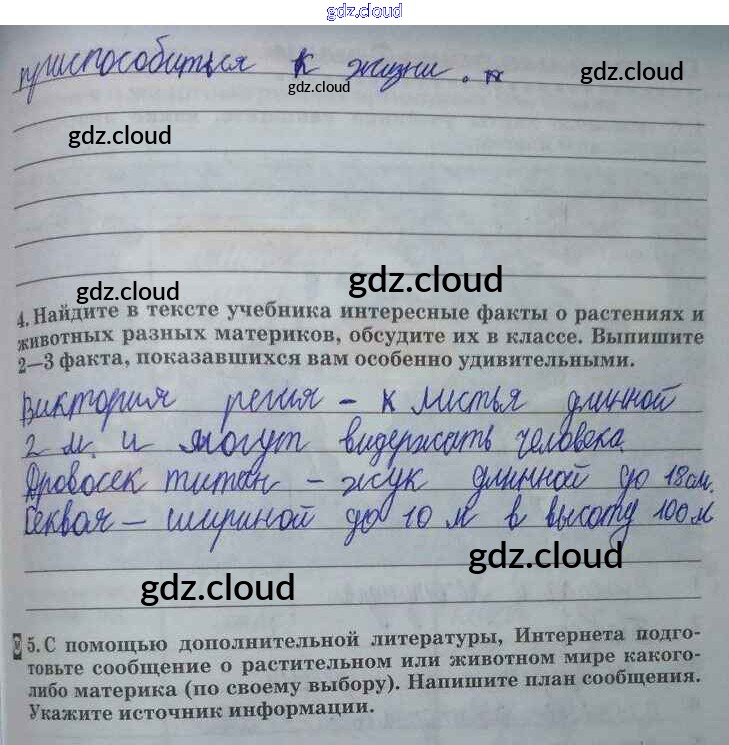 gdz.cloud
приспособиться к жизни.
gdz.cloud
gdz.cloud
gdz.cloud
gdz.cloud
gdz.cloud
4. Найдите в тексте учебника интересные факты о растениях и
животных разных материков, обсудите их в классе. Выпишите
2—3 факта, показавшихся вам особенно удивительными.
Виктория регия - листья длинной
2 м. и могут видержать человека
Дровосек титан - жук длинной до 18 см.
Секвоя - шириной до 10 м в высоту 100 м
gdz.cloud
gdz.cloud
5. С помощью дополнительной литературы, Интернета подго-
товьте сообщение о растительном или животном мире какого-
либо материка (по своему выбору). Напишите план сообщения.
Укажите источник информации.